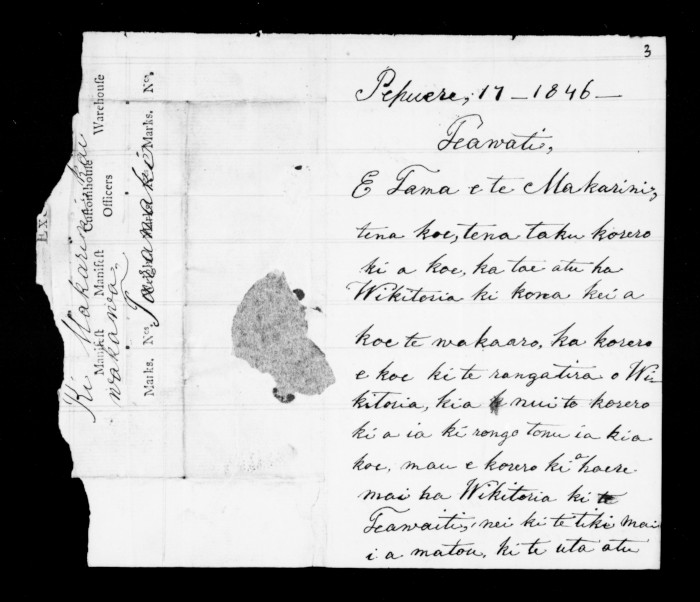 3
Pepuere, 17 - 1846 -
Teawaiti,
E Tama e te Makarini,
tena koe, tena taku korero
ki a koe, ka tae atu ha
Wikitoria ki kona kei a
koe te wakaaro, ka korero
e koe ki te rangatira o Wi-
kitoria, kia nui to korero
ki a ia ki rongo tonu ia kia
koe, mau e korero kia haere
mai ha Wikitoria ki te
Teawaiti, nei ki te tiki mai
i a matou, ki te uta atu
Ki Makarini kai
wakawa,
Taranaki
Manifest Manifest
Customhouse
Officers
Warehouse
Marks. Nos.
Marks. Nos.